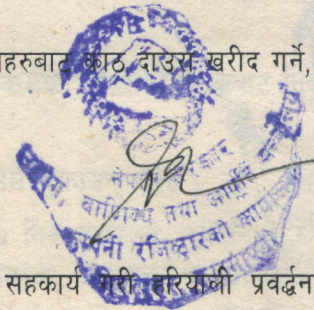 हरुबाट काठ दाउरा खरीद गर्ने,
नेपाल सरकार
उद्योग, वाणिज्य तथा आपूर्ति मन्त्रालय
कम्पनी रजिष्ट्रारको कार्यालय
सहकार्य गरी हरियाली प्रवर्द्धन